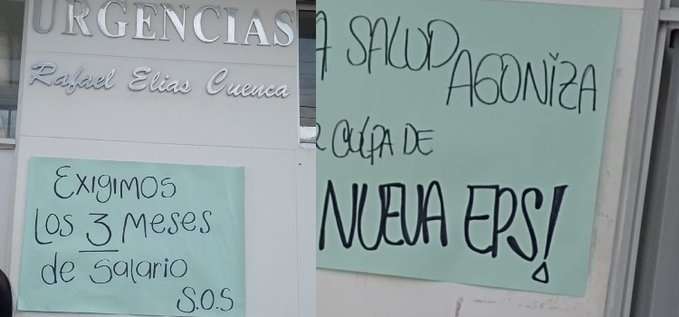 URGENCIAS
Rafael Elias Cuenca
EXIGIMOS
LOS 3 MESES
de SALARIO
S.O.S
A SALUD
AGONIZA
R CULPA DE
NUEVA EPS!